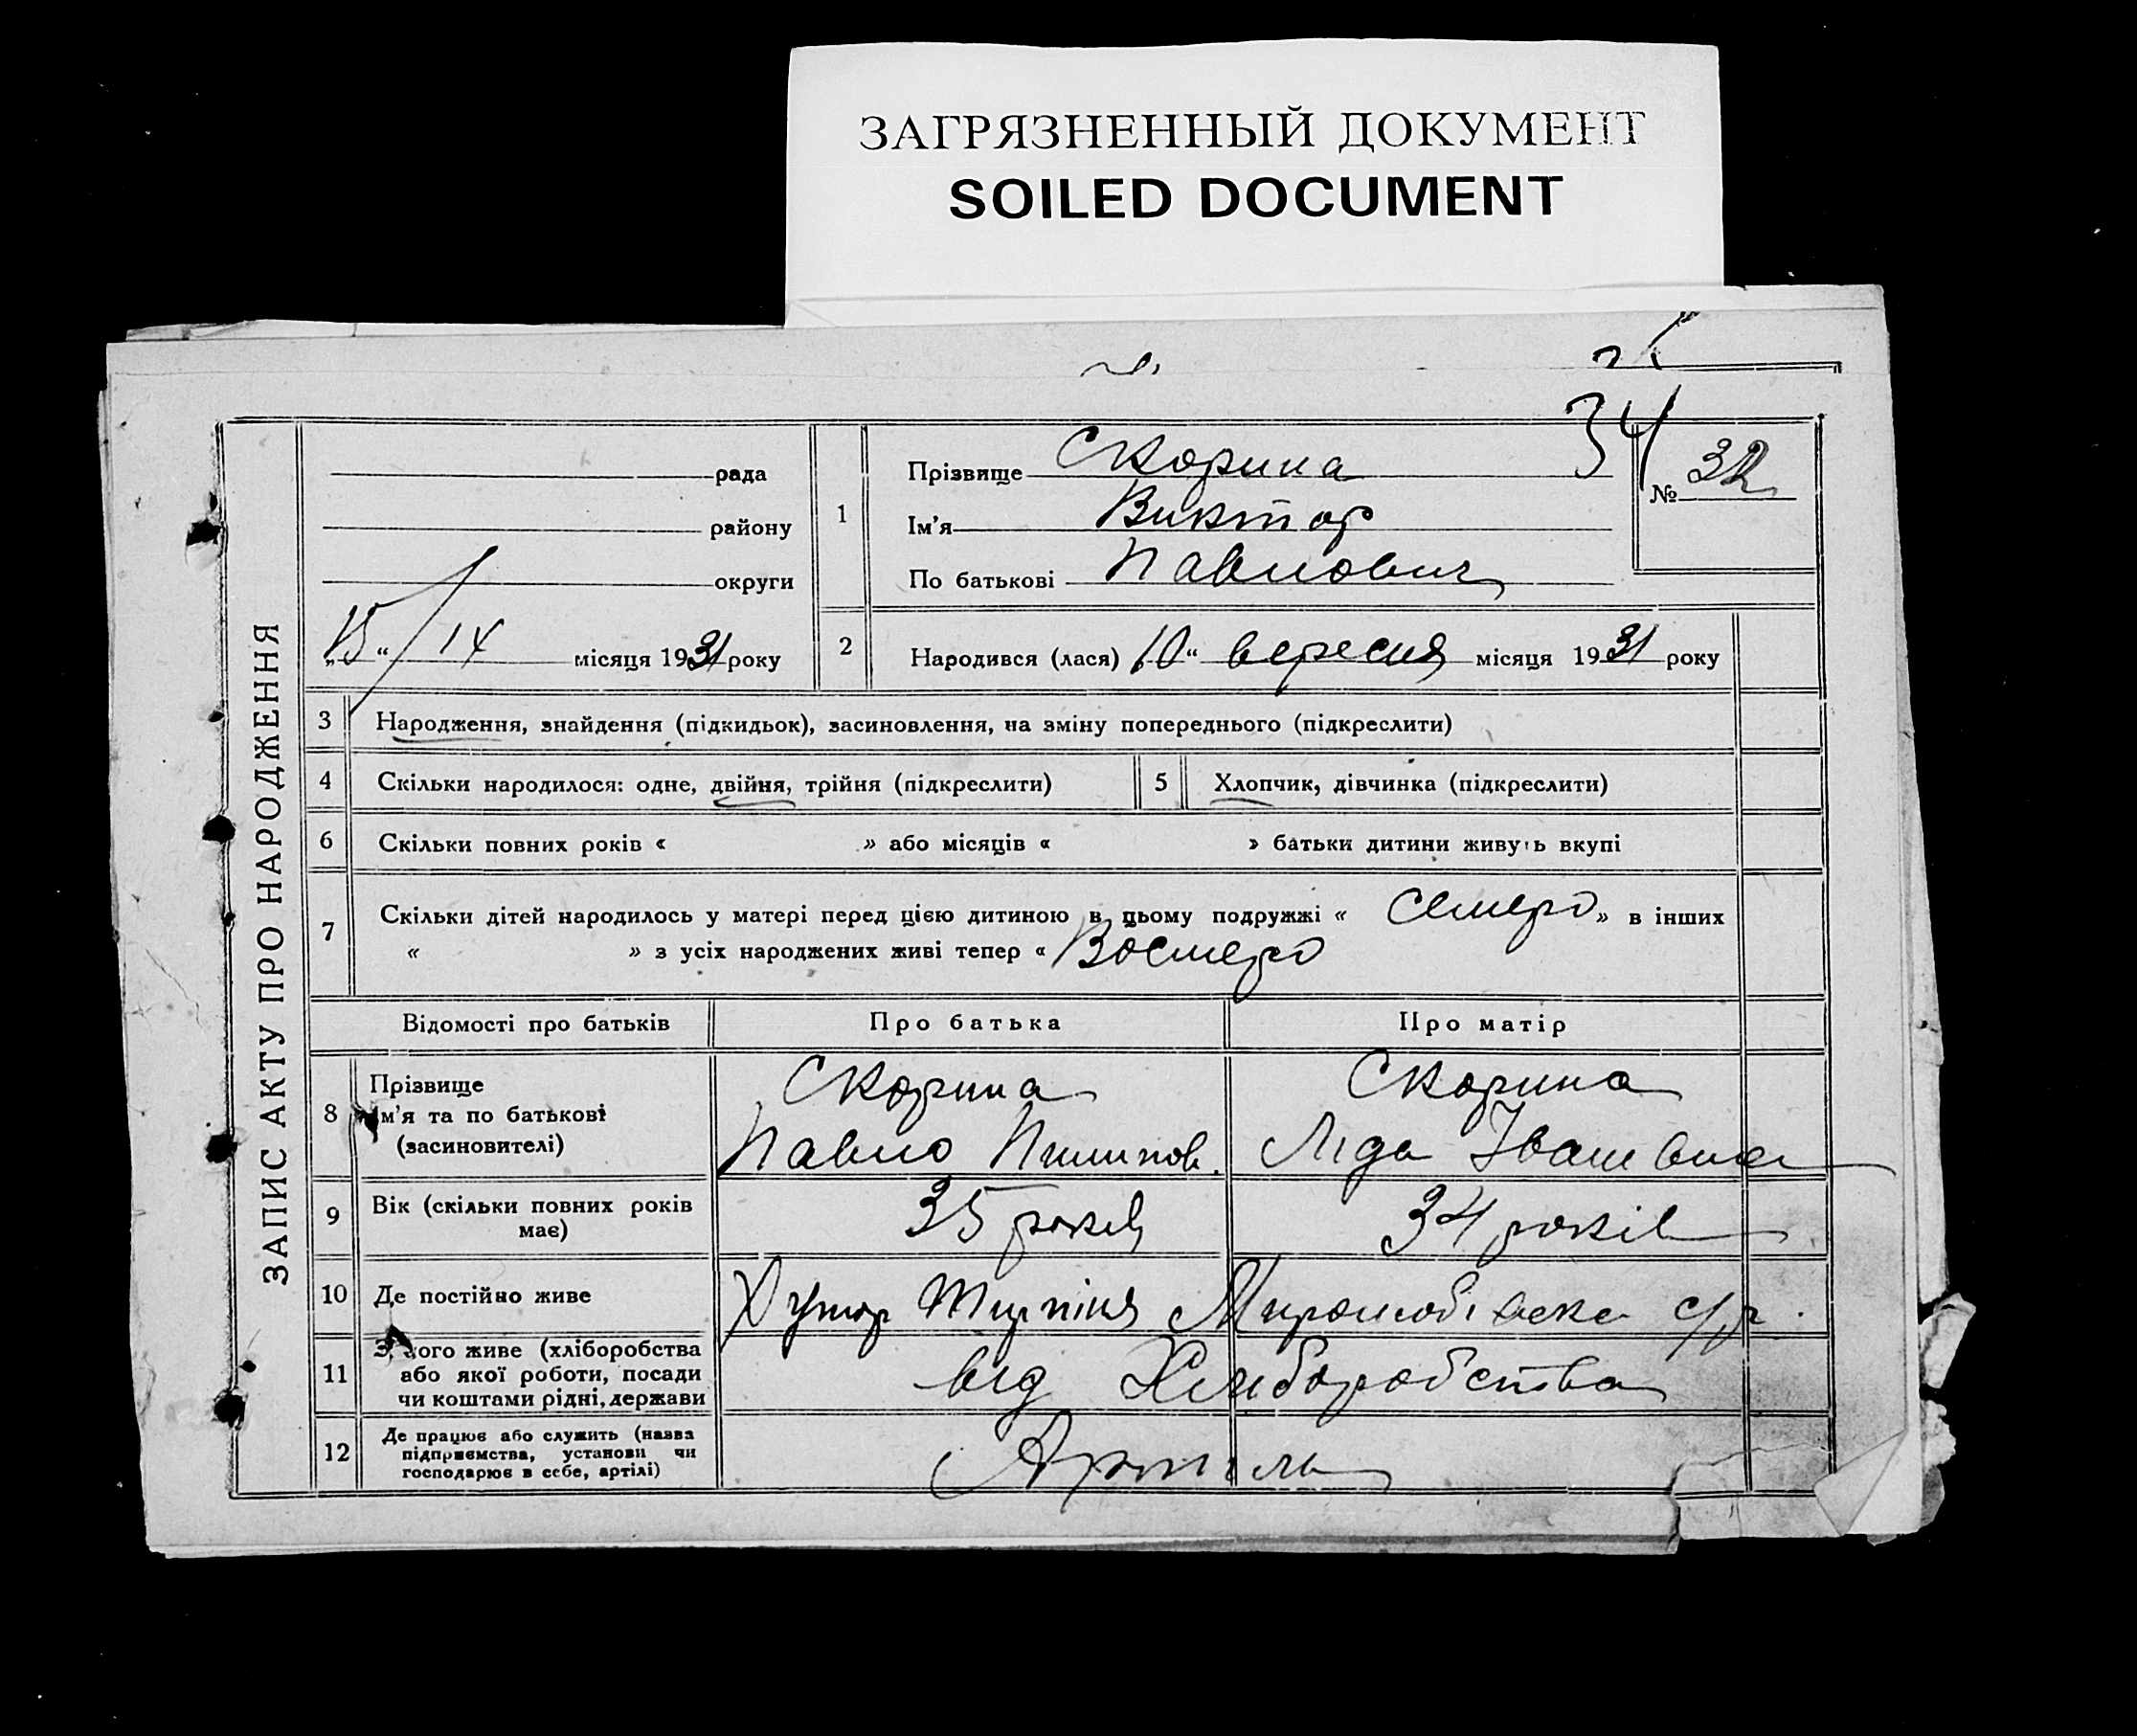 ЗАГРЯЗНЕННЫЙ ДОКУМЕНТ
SOILED DOCUMENT
34
ЗАПИС АКТУ ПРО НАРОДЖЕННЯ
рада
району
округи
„15“ / IX місяця 1931 року
1
Прізвище Скорина
Ім'я Виктор
По батькові Павлович
№ 32
2 Народився (лася) „10“ вересня місяця 1931 року
3 Народження, знайдення (підкидьок), засиновлення, на зміну попереднього (підкреслити)
4 Скільки народилося: одне, двійня, трійня (підкреслити)
5 Хлопчик, дівчинка (підкреслити)
6 Скільки повних років « » або місяців « » батьки дитини живуть вкупі
7 Скільки дітей народилось у матері перед цією дитиною в цьому подружжі « Семеро » в інших
« » з усіх народжених живі тепер « Восмеро
Відомості про батьків Про батька Про матір
8 Прізвище
Ім'я та по батькові
(засиновителі)
Скорина
Павло Пилипов.
Скорина
Ліда Івановна
9 Вік (скільки повних років
має)
35 років
34 років
10 Де постійно живе
Хутор с/р
11 З чого живе (хліборобства
або якої роботи, посади
чи коштами рідні, держави
від Хліборобства
12 Де працює або служить (назва
підприємства, установи чи
господарює в себе, артілі)
Артіль